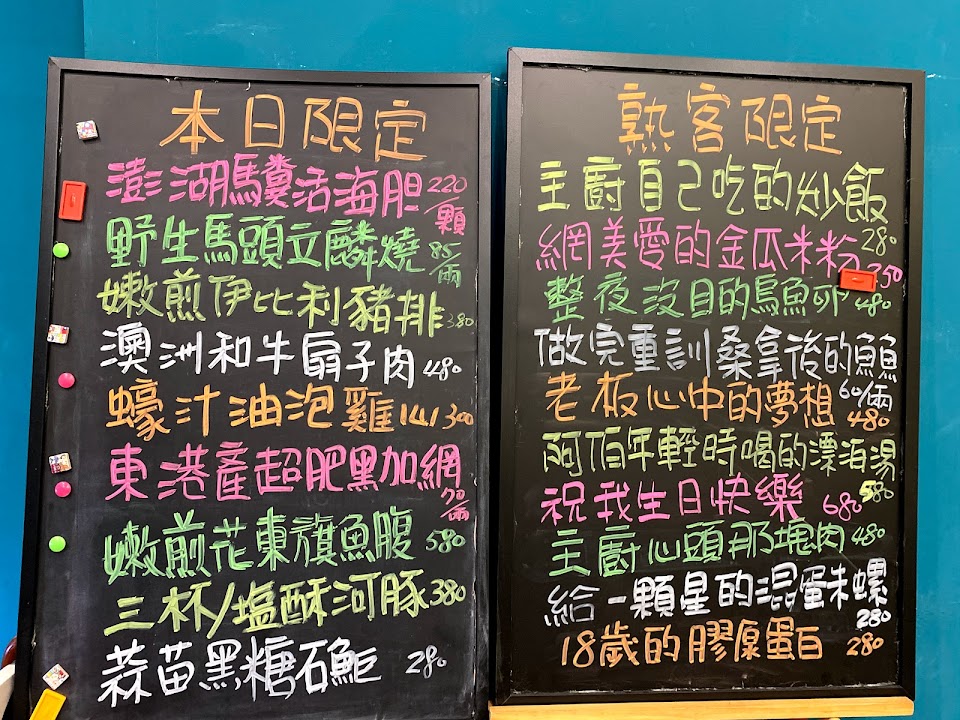 本日限定
澎湖馬糞活海胆 220/顆
野生馬頭立鱗燒 85/兩
嫩煎伊比利豬排 380
澳洲和牛扇子肉 480
蠔汁油泡雞仙 300
東港產超肥黑加網 70/兩
嫩煎花東旗魚腹 580
三杯/塩酥河豚 380
蒜苗黑糖石鮔 280
熟客限定
主廚自己吃的炒飯 280
網美愛的金瓜米粉 250
整夜沒目的烏魚 480
做完重訓桑拿後的 60/兩
老板心中的夢想 480
阿伯年輕時喝的漂海湯 580
祝我生日快樂 680
主廚心頭那塊肉 480
給一顆星的混蛋朱螺 280
18歲的膠原蛋白 280